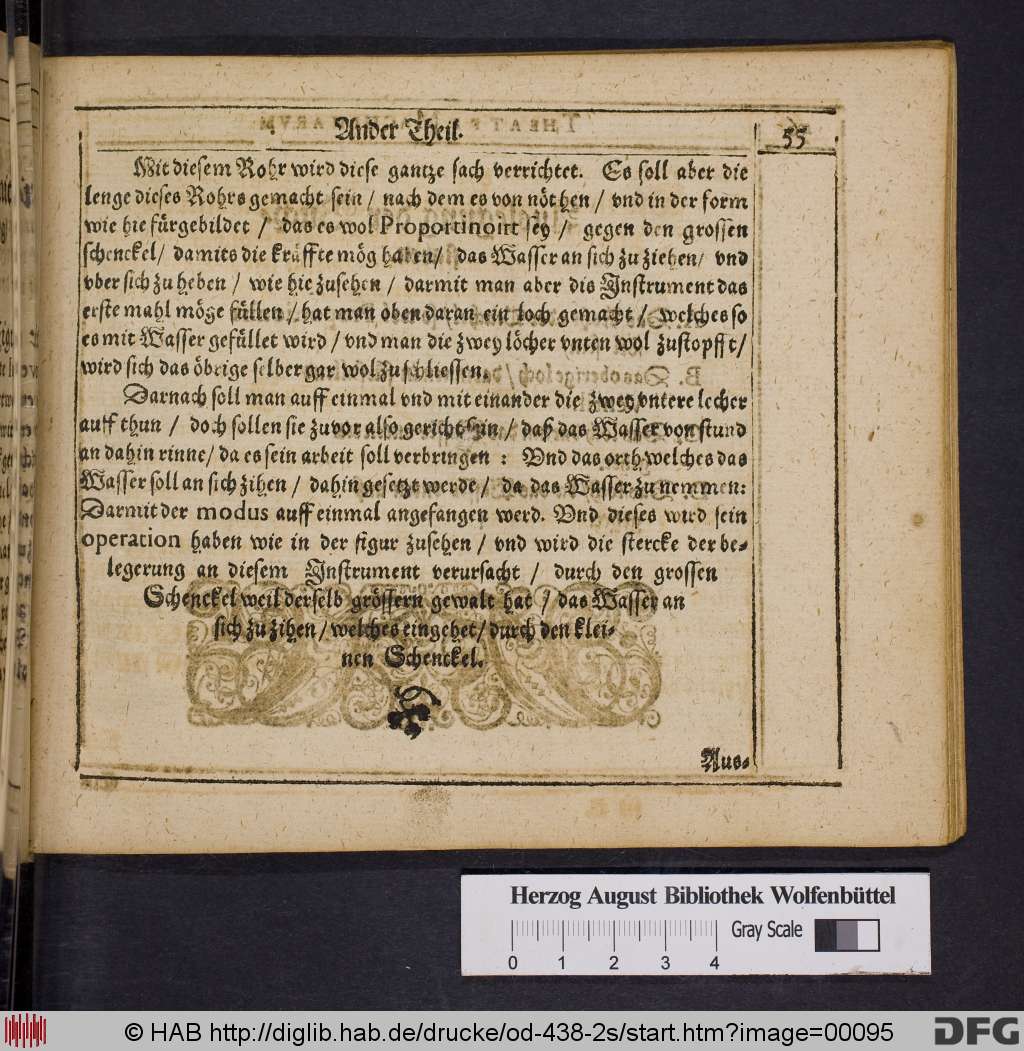 Ander Theil.
55
Mit diesem Rohr wird diese gantze sach verrichtet. Es soll aber die
lenge dieses Rohrs gemacht sein / nach dem es von nöthen / vnd in der form
wie hie fürgebildet / das es wol Proportinoirt sey / gegen den grossen
schenckel / damits die kräffte mög haben / das Wasser an sich zu ziehen / vnd
vber sich zu heben / wie hie zusehen / darmit man aber dis Instrument das
erste mahl möge füllen / hat man oben daran ein loch gemacht / welches so
es mit Wasser gefüllet wird / vnd man die zwey löcher vnten wol zustopfft /
wird sich das öbrige selber gar wol zu schliessen.
Darnach soll man auff einmal vnd mit einander die zwey vntere lecher
auff thun / doch sollen sie zuvor also gericht sein / daß das Wasser von stund
an dahin rinne / da es sein arbeit soll verbringen : Vnd das orth welches das
Wasser soll an sich zihen / dahin gesetzt werde / da das Wasser zu nemmen:
Darmit der modus auff einmal angefangen werd. Vnd dieses wird sein
operation haben wie in der figur zusehen / vnd wird die stercke der be-
legerung an diesem Instrument verursacht / durch den grossen
Schenckel weil derselb grössern gewalt hat / das Wasser an
sich zu zihen / welches eingehet / durch den klei-
nen Schenckel.
Aus-
Herzog August Bibliothek Wolfenbüttel
Gray Scale
0 1 2 3 4
© HAB http://diglib.hab.de/drucke/od-438-2s/start.htm?image=00095
DFG